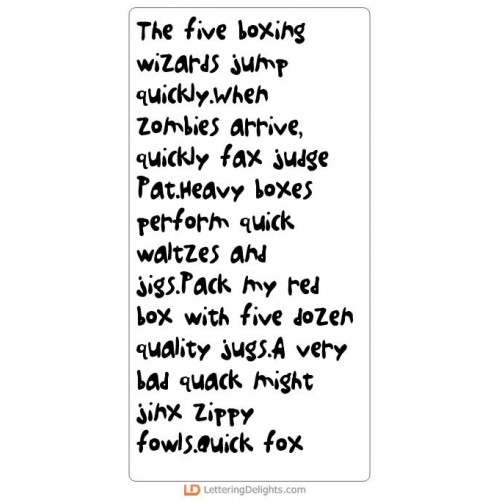 The five boxing
wizards jump
quickly.When
zombies arrive,
quickly fax judge
Pat.Heavy boxes
perform quick
waltzes and
jigs.Pack my red
box with five dozen
quality jugs.A very
bad quack might
jinx zippy
fowls.Quick fox
LD LetteringDelights.com